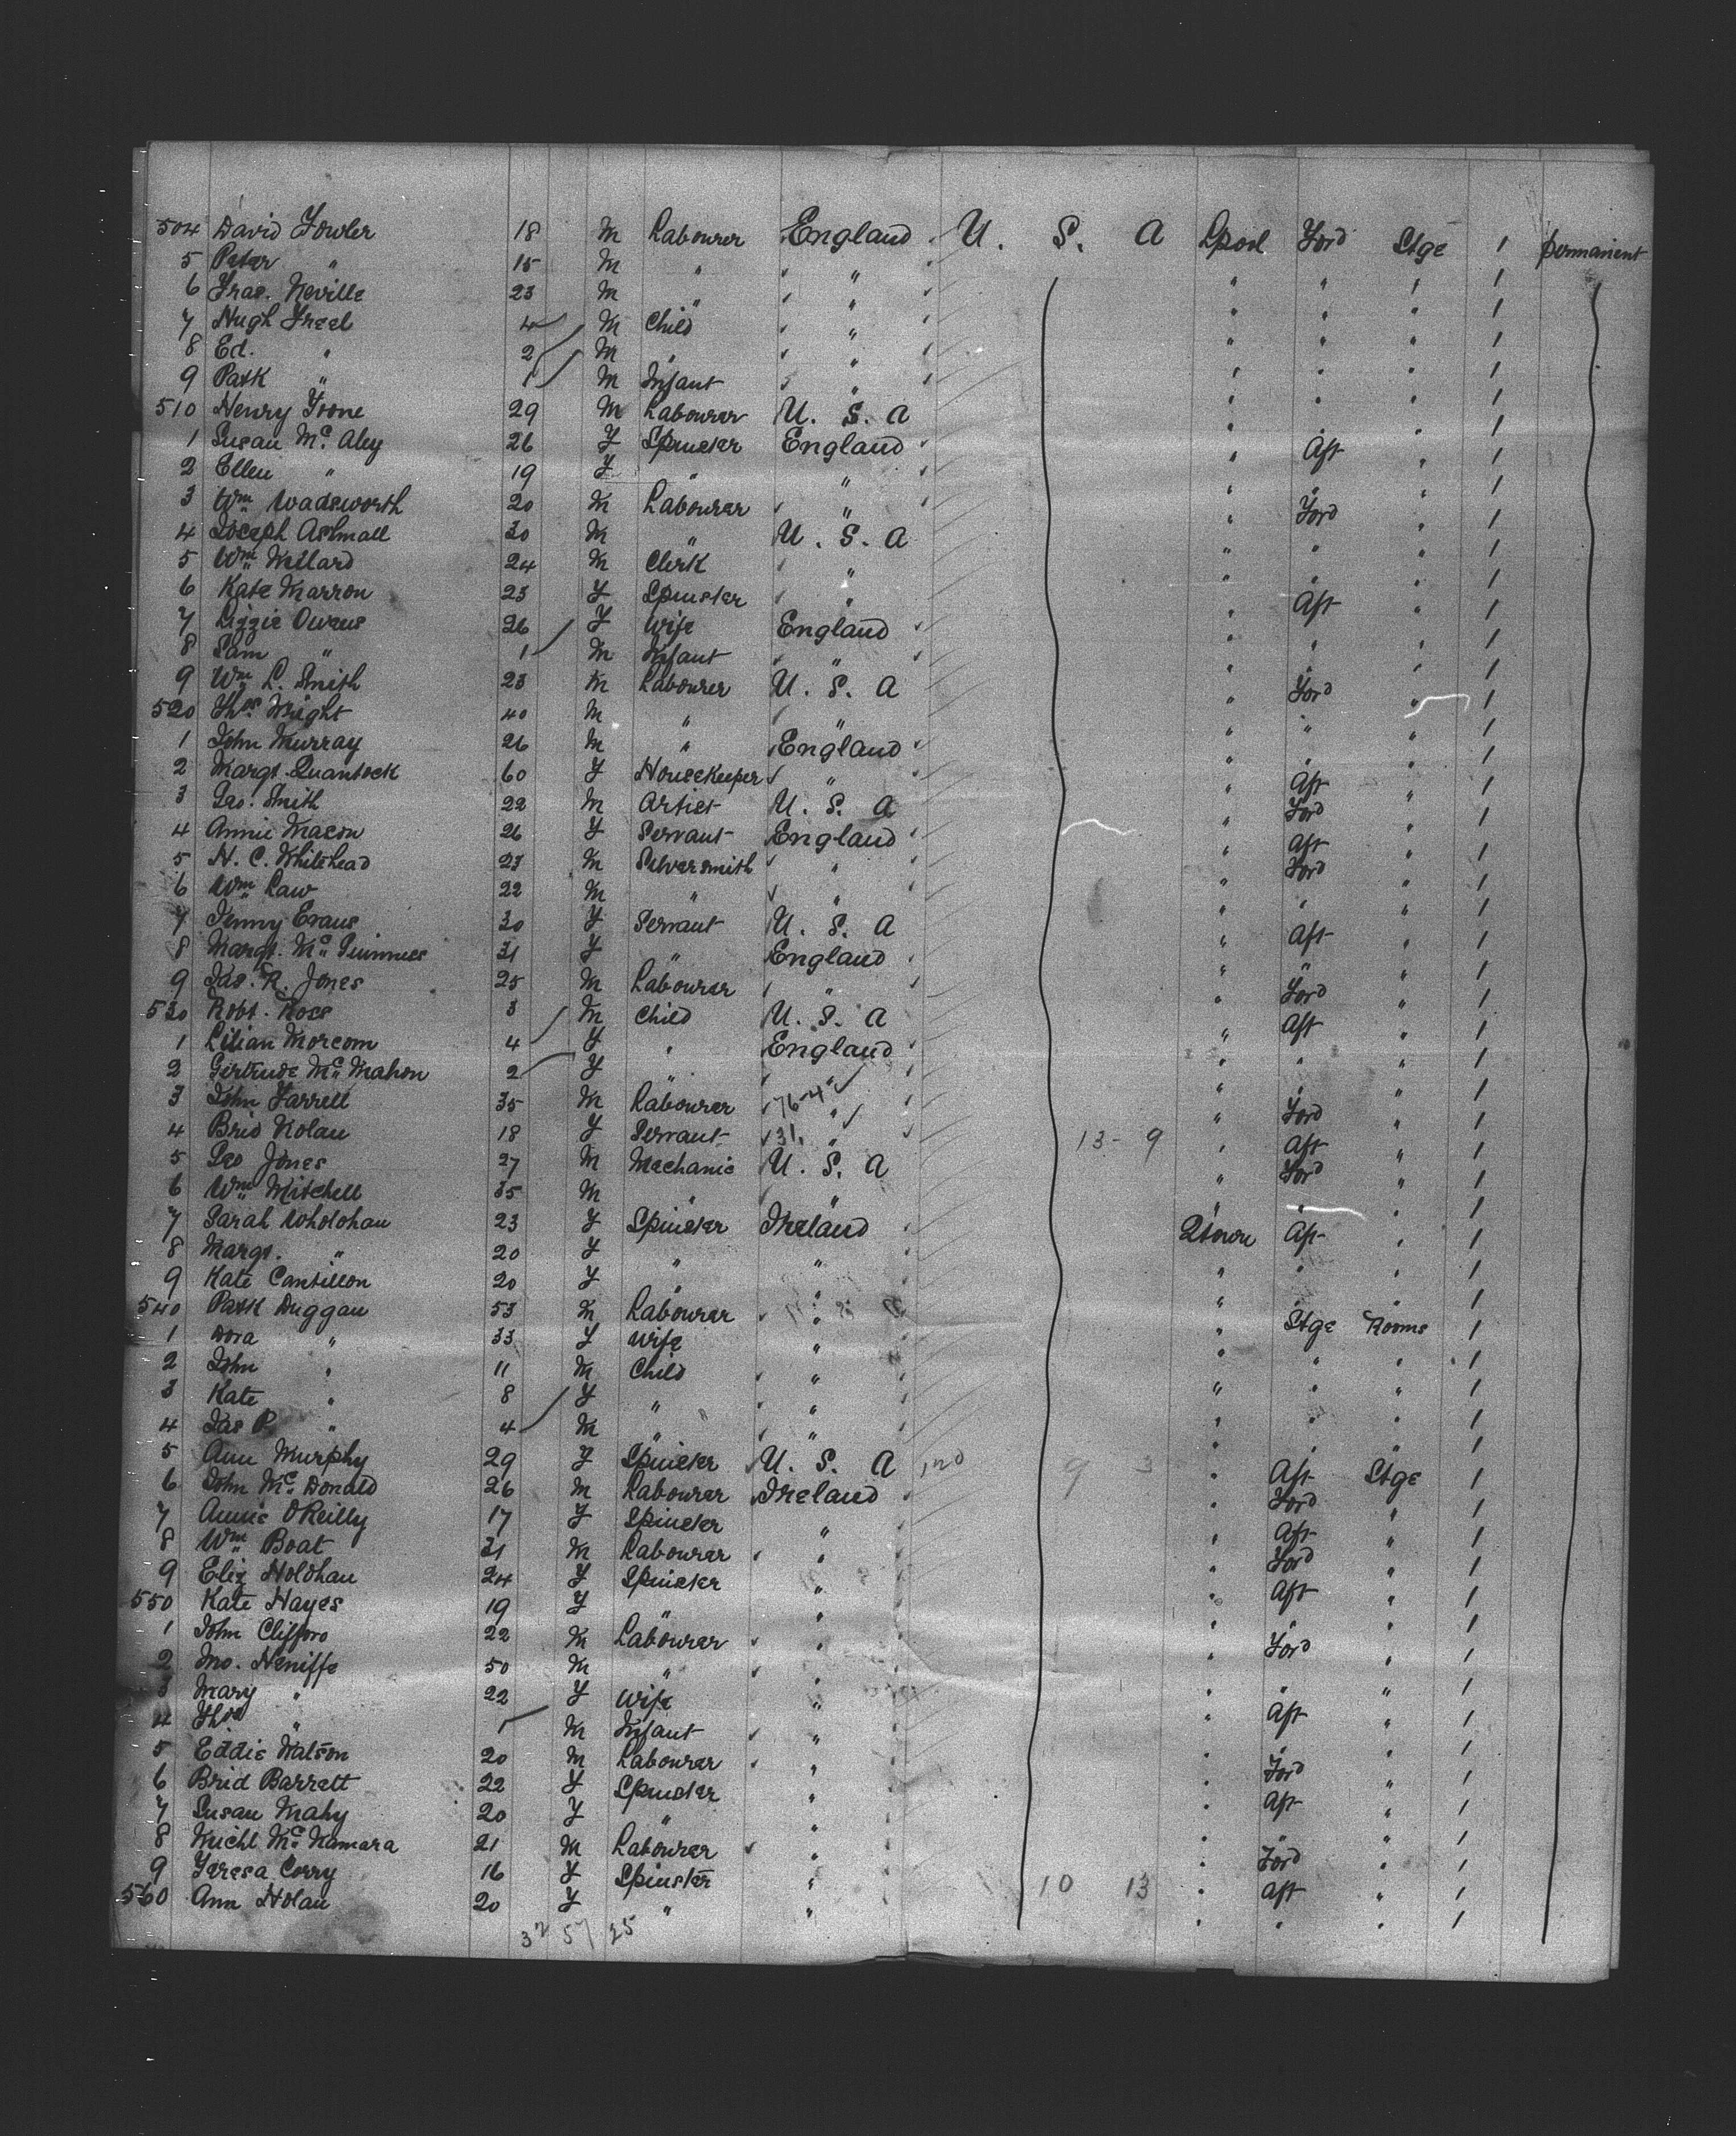 504 David Fowler 18 M Labourer England U. S. A Lpool Ford Stge 1 permanent
5 Peter " 15 M " " " " " 1
6 Fras. Neville 23 M " " " " " 1
7 Hugh Freel 4 M Child " " " " 1
8 Ed. " 2 M " " " " " 1
9 Patk " 1 M Infant " " " " 1
510 Henry Toone 29 M Labourer U. S. A " " " 1
1 Susan Mc Aley 26 F Spinster England " Aft " 1
2 Ellen " 19 F " " " " " 1
3 Wm Wadsworth 20 M Labourer " " Ford " 1
4 Joseph Ashmall 30 M " U. S. A " " " 1
5 Wm Millard 24 M Clerk " " " " 1
6 Kate Marron 23 F Spinster " " Aft " 1
7 Lizzie Owens 26 F Wife England " " " 1
8 Sam " 1 M Infant " " " " 1
9 Wm L. Smith 23 M Labourer U. S. A " Ford " 1
520 Thos. Wright 40 M " " " " " 1
1 John Murray 26 M " England " " " 1
2 Margt. Quantock 60 F Housekeeper " " Aft " 1
3 Geo. Smith 22 M Artist U. S. A " Ford " 1
4 Annie Mason 26 F Servant England " Aft " 1
5 H. C. Whitehead 23 M Silversmith " " Ford " 1
6 Wm Law 22 M " " " " " 1
7 Jenny Evans 30 F Servant U. S. A " Aft " 1
8 Margt. Mc Guinnies 31 F " England " " " 1
9 Jas. R. Jones 25 M Labourer " " Ford " 1
530 Robt. Ross 3 M Child U. S. A " Aft " 1
1 Lilian Morcom 4 F " England " " " 1
2 Gertrude Mc Mahon 2 F " " " " " 1
3 John Farrell 35 M Labourer " " Ford " 1
4 Brid Nolan 18 F Servant 31 " 13 - 9 " Aft " 1
5 Geo Jones 27 M Mechanic U. S. A " Ford " 1
6 Wm Mitchell 35 M " " " " " 1
7 Sarah Wholohan 23 F Spinster Ireland Qtown Aft " 1
8 Margt. " 20 F " " " " " 1
9 Kate Cantillon 20 F " " " " " 1
540 Patk Duggan 53 M Labourer " " Stge Rooms 1
1 Dora " 33 F Wife " " " " 1
2 John " 11 M Child " " " " 1
3 Kate " 8 F " " " " " 1
4 Jas P. " 4 M " " " " " 1
5 Ann Murphy 29 F Spinster U. S. A 9 3 " Aft Stge 1
6 John Mc Donald 26 M Labourer Ireland " Ford " 1
7 Annie O'Reilly 17 F Spinster " " Aft " 1
8 Wm Boat 31 M Labourer " " Ford " 1
9 Eliz Holohan 24 F Spinster " " Aft " 1
550 Kate Hayes 19 F " " " " " 1
1 John Clifford 22 M Labourer " " Ford " 1
2 Jno. Heniffe 50 M " " " " " 1
3 Mary " 22 F Wife " " Aft " 1
4 Thos " 1 M Infant " " " " 1
5 Eddie Watson 20 M Labourer " " Ford " 1
6 Brid Barrett 22 F Spinster " " Aft " 1
7 Susan Mahy 20 F " " " " " 1
8 Michl Mc Namara 21 M Labourer " " Ford " 1
9 Teresa Corry 16 F Spinster " 10 13 " Aft " 1
560 Ann Nolan 20 F " " " " " 1
32 57 25